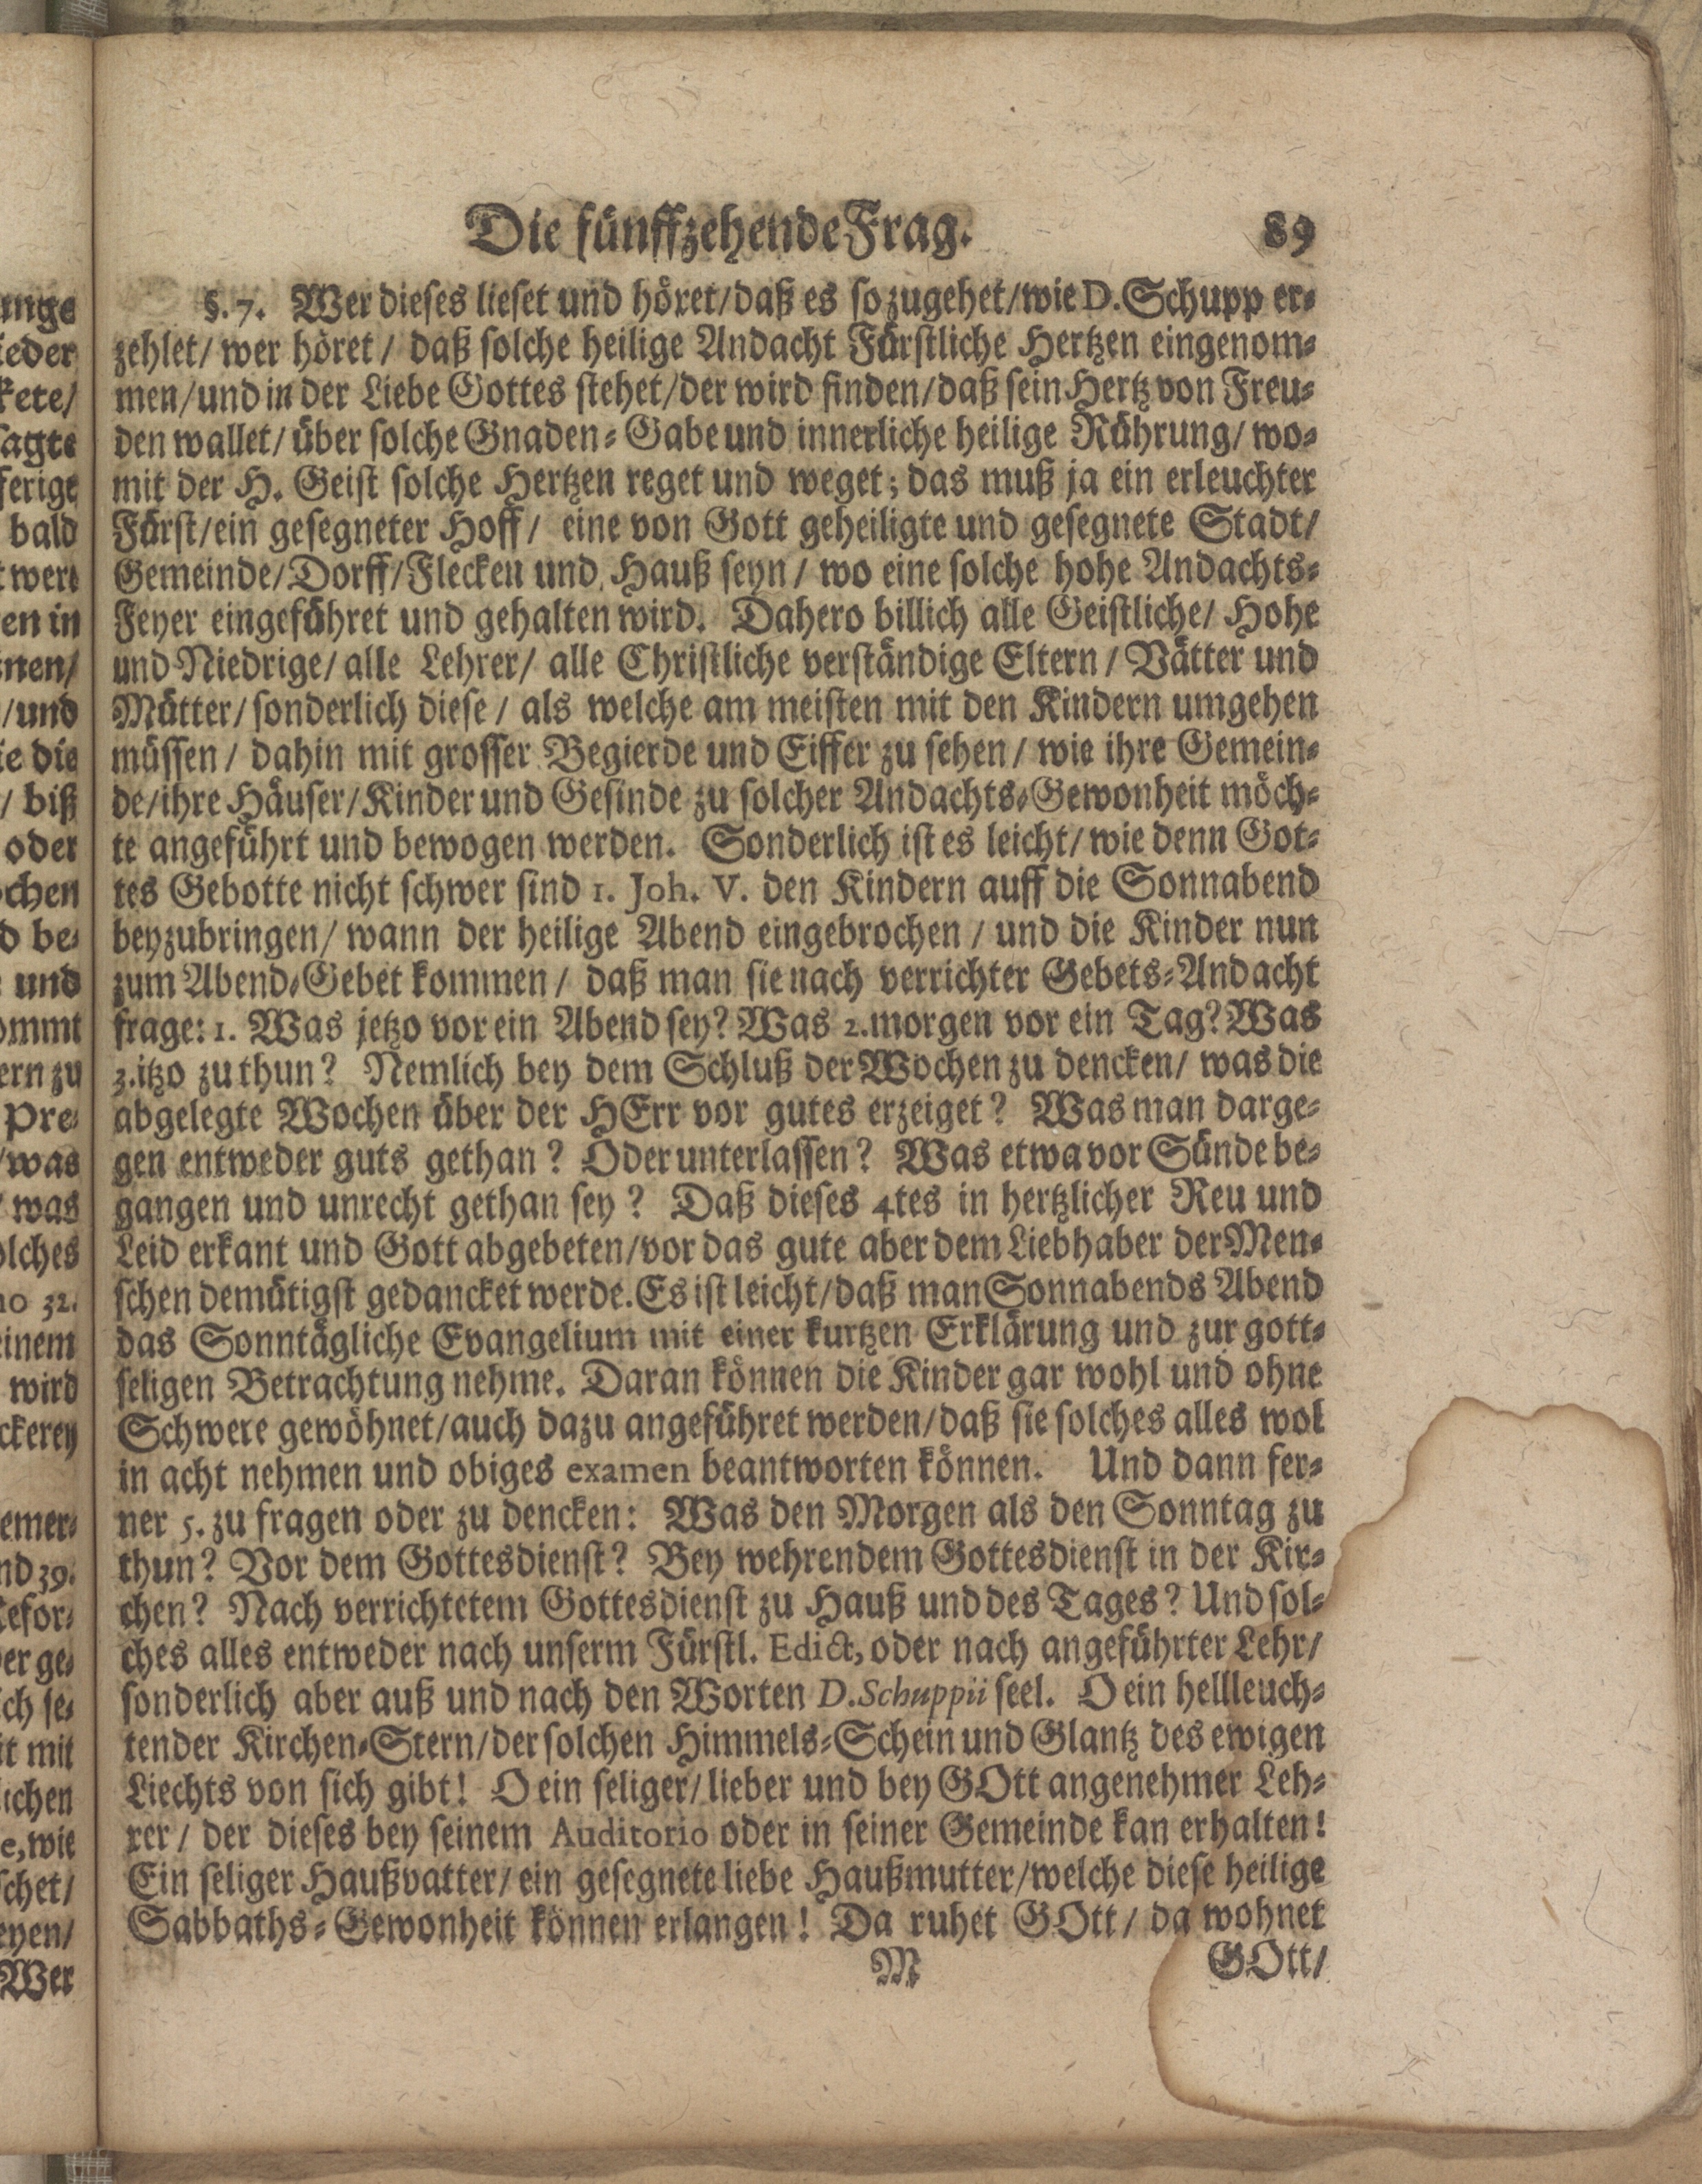 Die fünffzehende Frag. 89
§. 7. Wer dieses lieset und höret/daß es so zugehet/wie D. Schupp er-
zehlet/ wer höret / daß solche heilige Andacht Fürstliche Hertzen eingenom-
men/und in der Liebe Gottes stehet/der wird finden/daß sein Hertz von Freu-
den wallet/ über solche Gnaden-Gabe und innerliche heilige Rührung/ wo-
mit der H. Geist solche Hertzen reget und weget; das muß ja ein erleuchter
Fürst/ein gesegneter Hoff/ eine von Gott geheiligte und gesegnete Stadt/
Gemeinde/Dorff/Flecken und Hauß seyn/ wo eine solche hohe Andachts-
Feyer eingeführet und gehalten wird. Dahero billich alle Geistliche/ Hohe
und Niedrige/ alle Lehrer/ alle Christliche verständige Eltern / Vätter und
Mütter/ sonderlich diese / als welche am meisten mit den Kindern umgehen
müssen / dahin mit grosser Begierde und Eiffer zu sehen / wie ihre Gemein-
de/ihre Häuser/Kinder und Gesinde zu solcher Andachts-Gewonheit möch-
te angeführt und bewogen werden. Sonderlich ist es leicht/ wie denn Got-
tes Gebotte nicht schwer sind 1. Joh. V. den Kindern auff die Sonnabend
beyzubringen/ wann der heilige Abend eingebrochen / und die Kinder nun
zum Abend-Gebet kommen / daß man sie nach verrichter Gebets-Andacht
frage: 1. Was jetzo vor ein Abend sey? Was 2. morgen vor ein Tag? Was
3. itzo zu thun? Nemlich bey dem Schluß der Wochen zu dencken/ was die
abgelegte Wochen über der HErr vor gutes erzeiget? Was man darge-
gen entweder guts gethan? Oder unterlassen? Was etwa vor Sünde be-
gangen und unrecht gethan sey? Daß dieses 4tes in hertzlicher Reu und
Leid erkant und Gott abgebeten/vor das gute aber dem Liebhaber der Men-
schen demütigst gedancket werde. Es ist leicht/daß man Sonnabends Abend
das Sonntägliche Evangelium mit einer kurtzen Erklärung und zur gott-
seligen Betrachtung nehme. Daran können die Kinder gar wohl und ohne
Schwere gewöhnet/auch dazu angeführet werden/daß sie solches alles wol
in acht nehmen und obiges examen beantworten können. Und dann fer-
ner 5. zu fragen oder zu dencken: Was den Morgen als den Sonntag zu
thun? Vor dem Gottesdienst? Bey wehrendem Gottesdienst in der Kir-
chen? Nach verrichtetem Gottesdienst zu Hauß und des Tages? Und sol-
ches alles entweder nach unserm Fürstl. Edict, oder nach angeführter Lehr/
sonderlich aber auß und nach den Worten D. Schuppii seel. O ein hellleuch-
tender Kirchen-Stern/der solchen Himmels-Schein und Glantz des ewigen
Liechts von sich gibt! O ein seliger/ lieber und bey GOtt angenehmer Leh-
rer/ der dieses bey seinem Auditorio oder in seiner Gemeinde kan erhalten!
Ein seliger Haußvatter/ ein gesegnete liebe Haußmutter/welche diese heilige
Sabbaths-Gewonheit können erlangen! Da ruhet GOtt/ da wohnet
M GOtt/